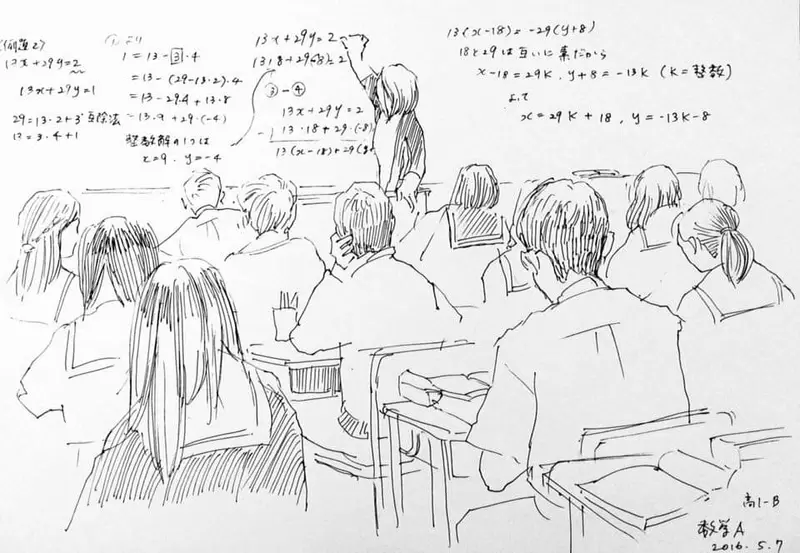 (例題2)
13x+29y=2
13x+29y=1
29=13・2+3 互除法
13=3・4+1
①より
1=13-3・4
=13-(29-13・2)・4
=13-29・4+13・8
=13・9+29・(-4)
整数解の1つは
x=9, y=-4
13x+29y=2
13・18+29・(-8)=2
③-④
13x+29y=2
-) 13・18+29・(-8)
13(x-18)+29(y+
13(x-18)=-29(y+8)
18と29は互いに素だから
x-18=29K, y+8=-13K (K=整数)
よって
x=29K+18, y=-13K-8
高1-B
数学A
2016.5.7